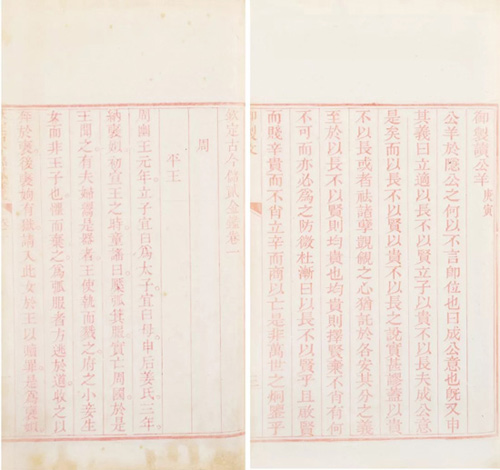 御製讀公羊 庚寅
公羊於隱公之何以不言即位也曰成公意也旣又申
其義曰立適以長不以賢立子以貴不以長夫成公意
是矣而以長不以賢以貴不以長之說實甚謬蓋以貴
不以長或者祛諸孽覬覦之心猶託於各安其分之義
至於以長不以賢則均貴也均貴則擇賢棄不肖有何
不可而亦必為之防微杜漸曰以長不以賢乎且啟賢
而賤辛貴而不肖立辛而商以亡是非萬世之炯鑒乎
欽定古今儲貳金鑑卷一
周
平王
周幽王元年立子宜臼為太子宜臼母申后姜氏三年
納褒姒初宣王之時童謠曰檿弧箕服實亡周國於是
王聞之有夫婦鬻是器者王使執而戮之府之小妾生
女而非王子也懼而棄之為弧服者方逃於道收之以
奔於褒後褒姁有獄請入此女於王以贖罪是為褒姒